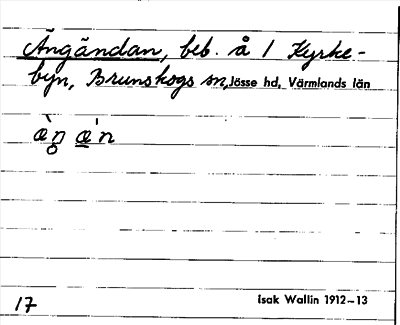 Ängändan, beb. å 1 Kyrke-
byn, Brunskogs sn, Jösse hd, Värmlands län
æ̀n̥ æ̲'n
17
Isak Wallin 1912–13